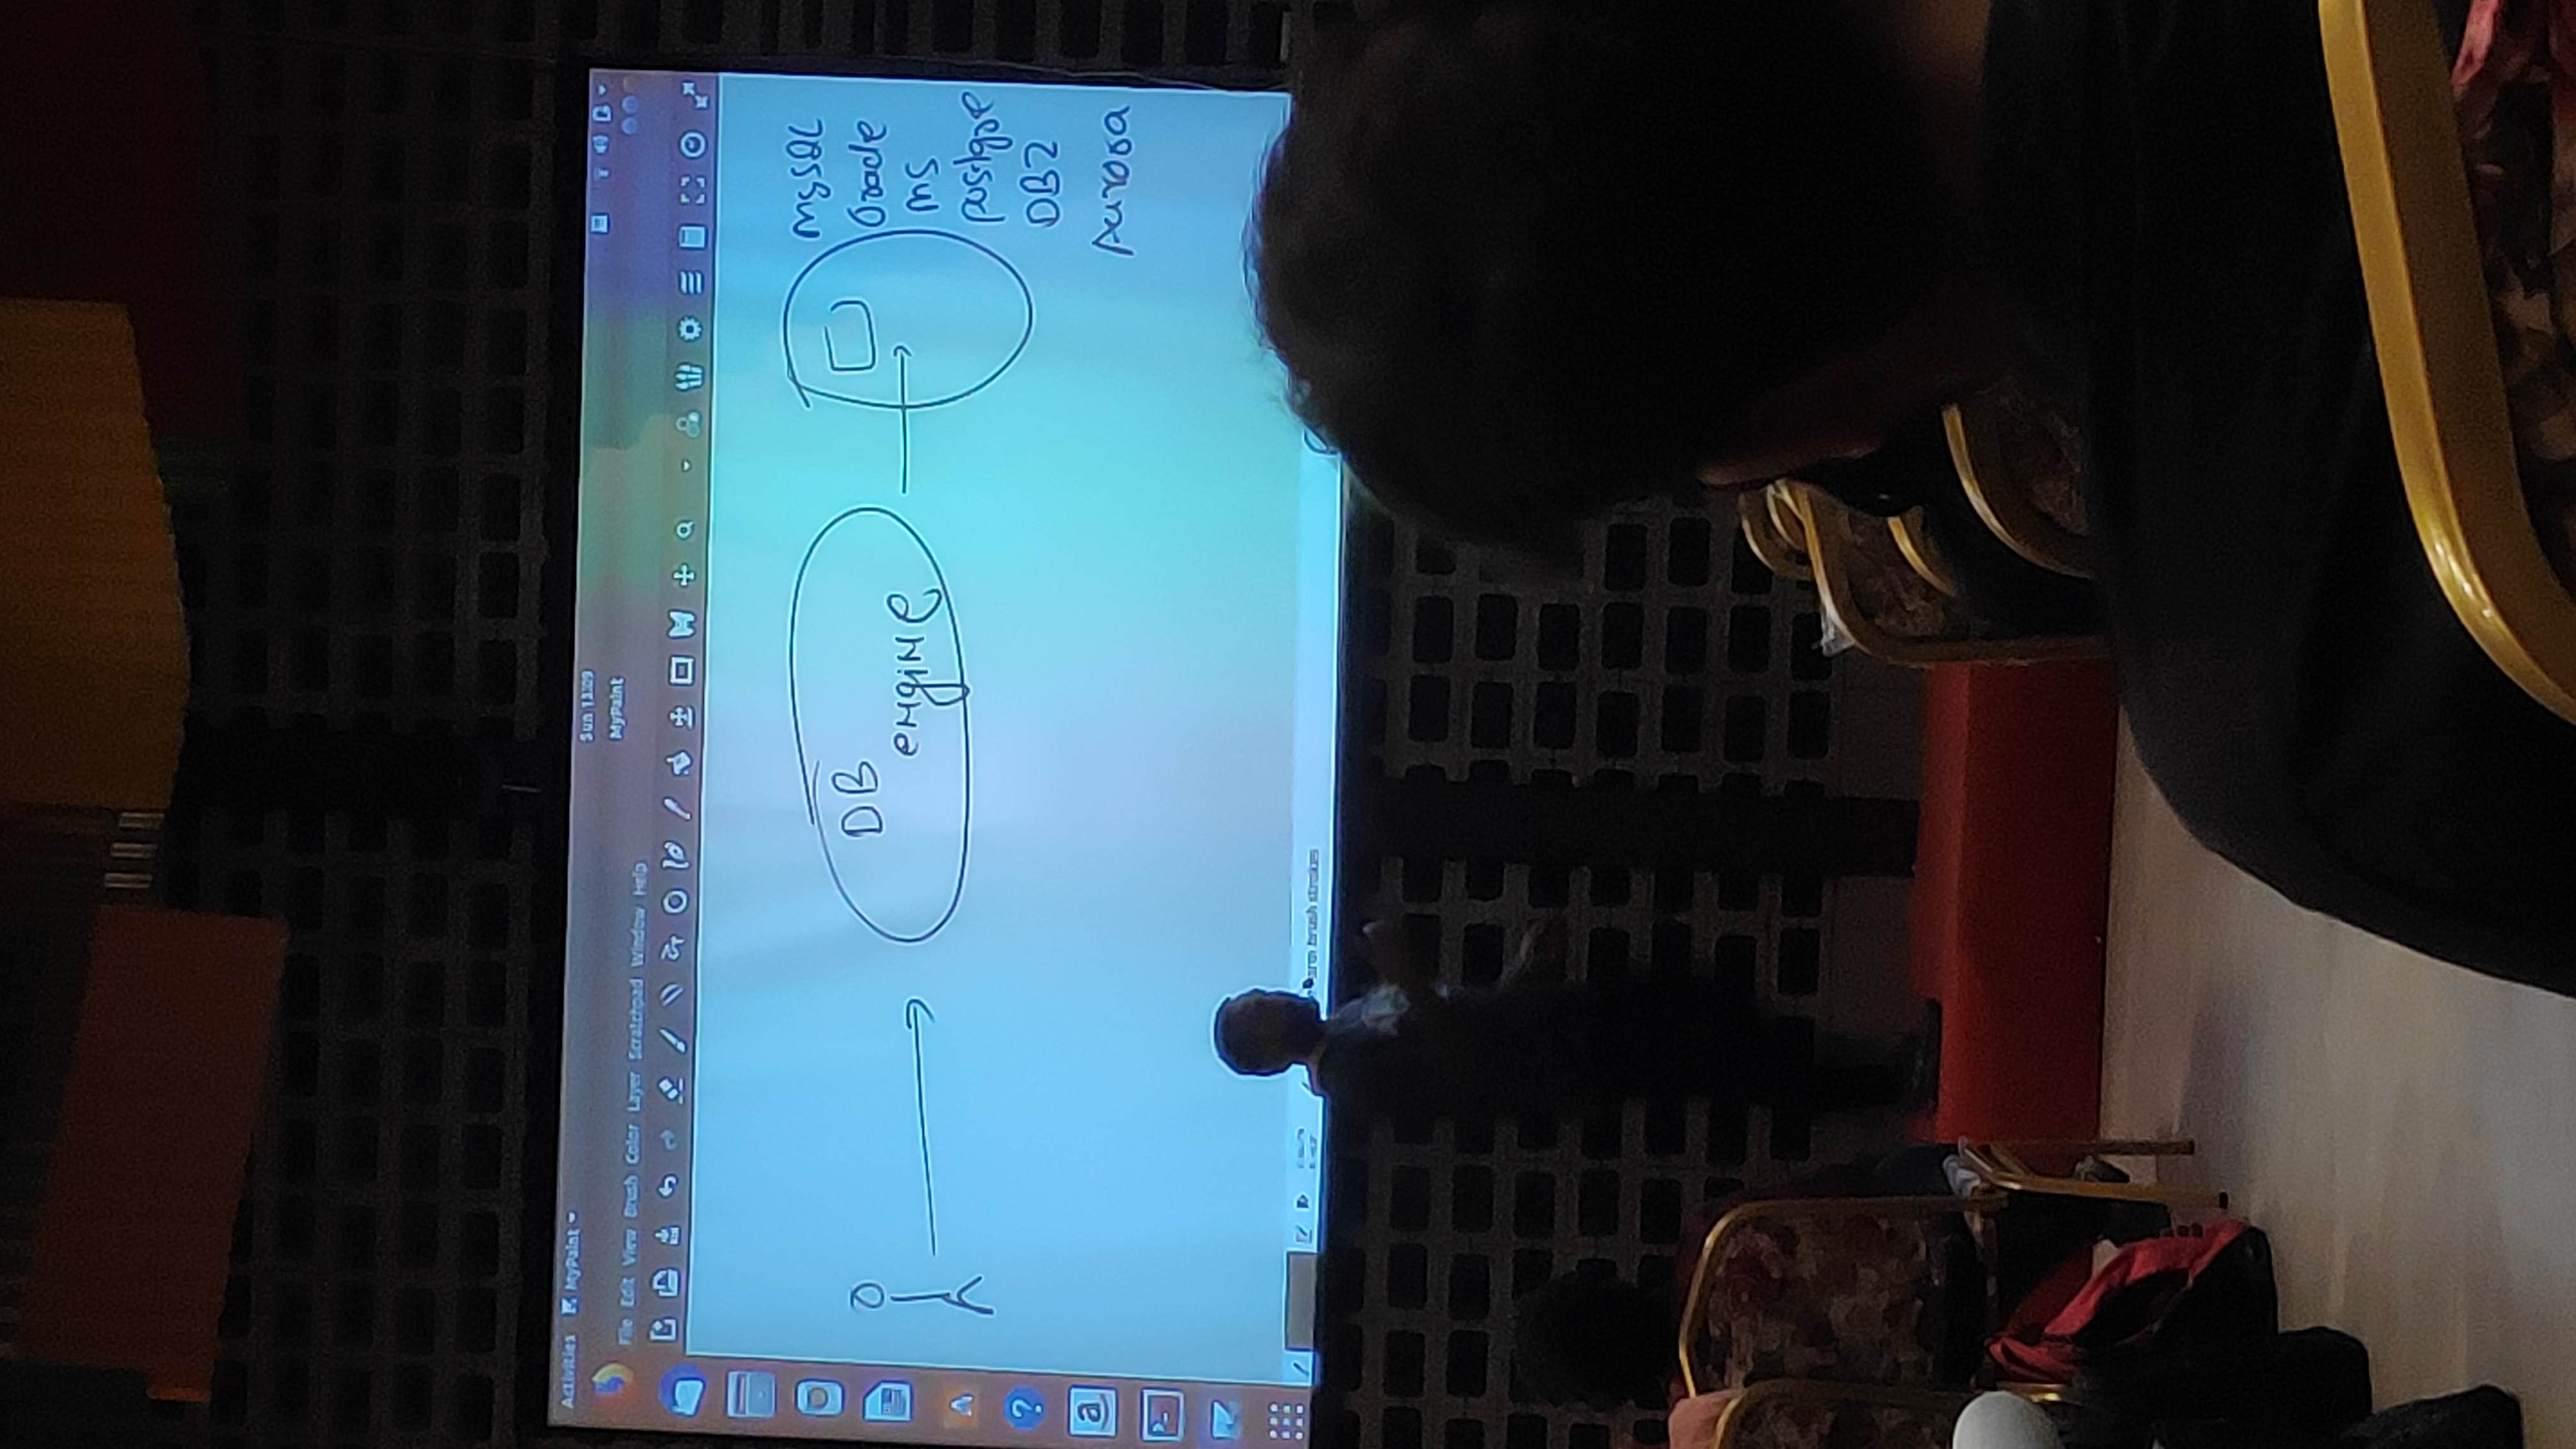 Activities MyPaint
Sun 13:09
MyPaint
File Edit View Brush Color Layer Scratchpad Window Help
DB
engine
MySQL
Oracle
MS
postgre
DB2
Aurora
brush strokes